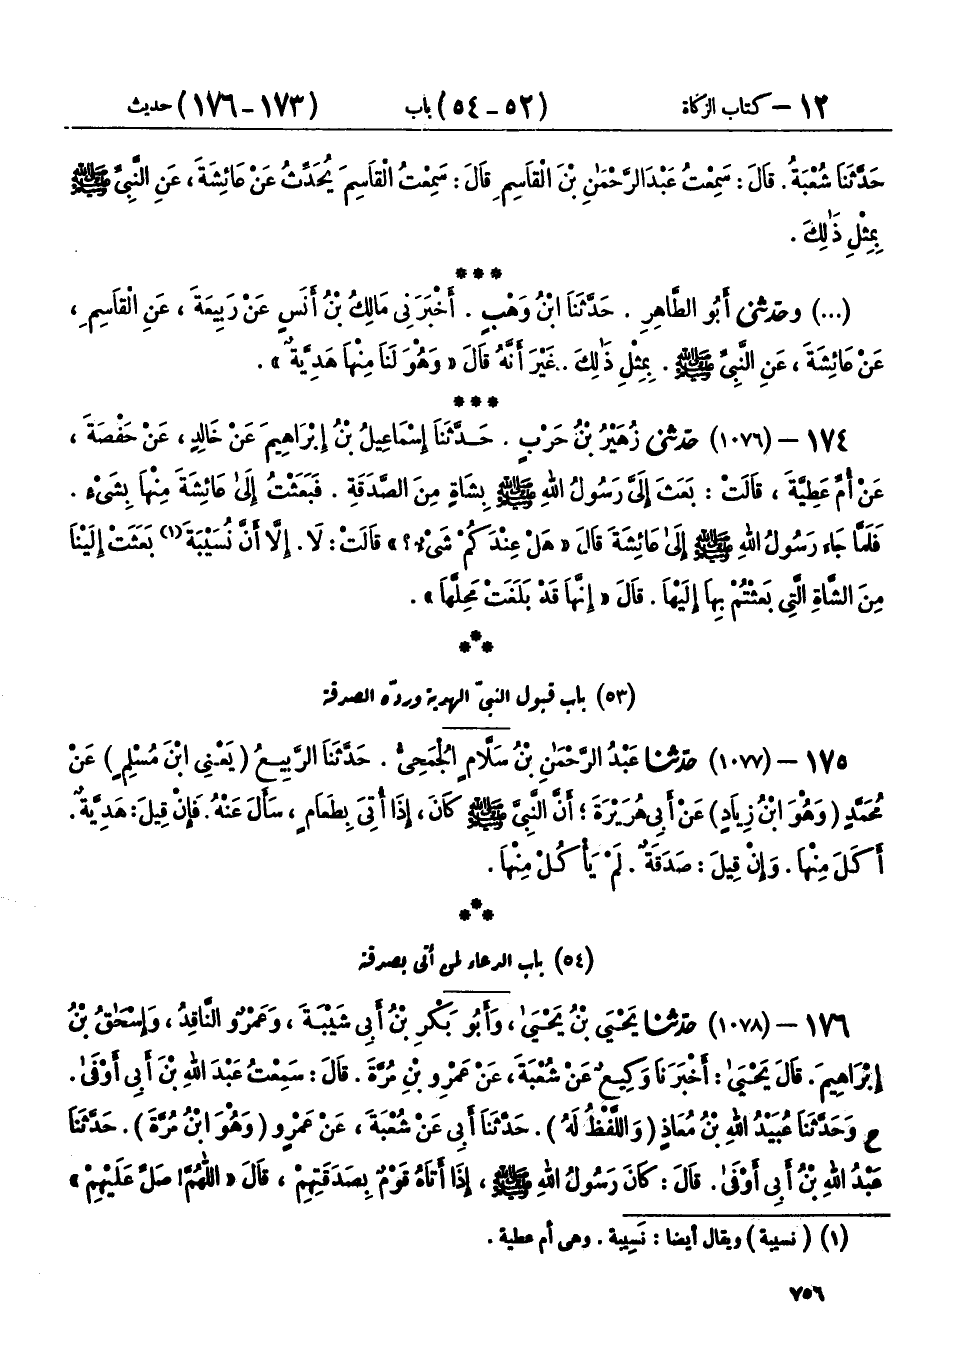 ١٢ – كتاب الزكاة (٥٢ – ٥٤) باب (١٧٣ – ١٧٦) حديث
حَدَّثَنَا شُعْبَةُ . قَالَ : سَمِعْتُ عَبْدَ الرَّحْمٰنِ بْنَ الْقَاسِمِ قَالَ : سَمِعْتُ الْقَاسِمَ يُحَدِّثُ عَنْ عَائِشَةَ ، عَنِ النَّبِيِّ ﷺ
بِمِثْلِ ذَٰلِكَ .
***
(...) وحدثنى أَبُو الطَّاهِرِ . حَدَّثَنَا ابْنُ وَهْبٍ . أَخْبَرَنِى مَالِكُ بْنُ أَنَسٍ عَنْ رَبِيعَةَ ، عَنِ الْقَاسِمِ ،
عَنْ عَائِشَةَ ، عَنِ النَّبِيِّ ﷺ . بِمِثْلِ ذَٰلِكَ . . غَيْرَ أَنَّهُ قَالَ « وَهُوَ لَنَا مِنْهَا هَدِيَّةٌ » .
***
١٧٤ – (١٠٧٦) حدثنى زُهَيْرُ بْنُ حَرْبٍ . حَدَّثَنَا إِسْمَاعِيلُ بْنُ إِبْرَاهِيمَ عَنْ خَالِدٍ ، عَنْ حَفْصَةَ ،
عَنْ أُمِّ عَطِيَّةَ ، قَالَتْ : بَعَثَ إِلَىَّ رَسُولُ اللهِ ﷺ بِشَاةٍ مِنَ الصَّدَقَةِ . فَبَعَثْتُ إِلَىٰ عَائِشَةَ مِنْهَا بِشَىْءٍ .
فَلَمَّا جَاءَ رَسُولُ اللهِ ﷺ إِلَىٰ عَائِشَةَ قَالَ « هَلْ عِنْدَكُمْ شَىْءٌ ؟ » قَالَتْ : لَا . إِلَّا أَنَّ نُسَيْبَةَ (١) بَعَثَتْ إِلَيْنَا
مِنَ الشَّاةِ الَّتِي بَعَثْتُمْ بِهَا إِلَيْهَا . قَالَ « إِنَّهَا قَدْ بَلَغَتْ مَحِلَّهَا » .
***
(٥٣) باب قبول النبىّ الهدية وردّه الصدقة
١٧٥ – (١٠٧٧) حدثنا عَبْدُ الرَّحْمٰنِ بْنُ سَلَّامٍ الْجُمَحِىُّ . حَدَّثَنَا الرَّبِيعُ ( يَعْنِي ابْنَ مُسْلِمٍ ) عَنْ
مُحَمَّدٍ ( وَهُوَ ابْنُ زِيَادٍ ) عَنْ أَبِي هُرَيْرَةَ ؛ أَنَّ النَّبِيَّ ﷺ كَانَ ، إِذَا أُتِىَ بِطَعَامٍ ، سَأَلَ عَنْهُ . فَإِنْ قِيلَ : هَدِيَّةٌ .
أَكَلَ مِنْهَا . وَإِنْ قِيلَ : صَدَقَةٌ . لَمْ يَأْكُلْ مِنْهَا .
***
(٥٤) باب الدعاء لمن أتى بصدقة
١٧٦ – (١٠٧٨) حدثنا يَحْيَي بْنُ يَحْيَىٰ ، وَأَبُو بَكْرِ بْنُ أَبِي شَيْبَةَ ، وَعَمْرٌو النَّاقِدُ ، وَإِسْحَٰقُ بْنُ
إِبْرَاهِيمَ . قَالَ يَحْيَىٰ : أَخْبَرَنَا وَكِيعٌ عَنْ شُعْبَةَ ، عَنْ عَمْرِو بْنِ مُرَّةَ . قَالَ : سَمِعْتُ عَبْدَ اللهِ بْنَ أَبِي أَوْفَىٰ .
ح وَحَدَّثَنَا عُبَيْدُ اللهِ بْنُ مُعَاذٍ ( وَاللَّفْظُ لَهُ ) . حَدَّثَنَا أَبِي عَنْ شُعْبَةَ ، عَنْ عَمْرٍو ( وَهُوَ ابْنُ مُرَّةَ ) . حَدَّثَنَا
عَبْدُ اللهِ بْنُ أَبِي أَوْفَىٰ . قَالَ : كَانَ رَسُولُ اللهِ ﷺ ، إِذَا أَتَاهُ قَوْمٌ بِصَدَقَتِهِمْ ، قَالَ « اللّٰهُمَّ ! صَلِّ عَلَيْهِمْ »
(١) ( نسيبة ) ويقال أيضا : نَسِيبة . وهى أم عطية .
٧٥٦